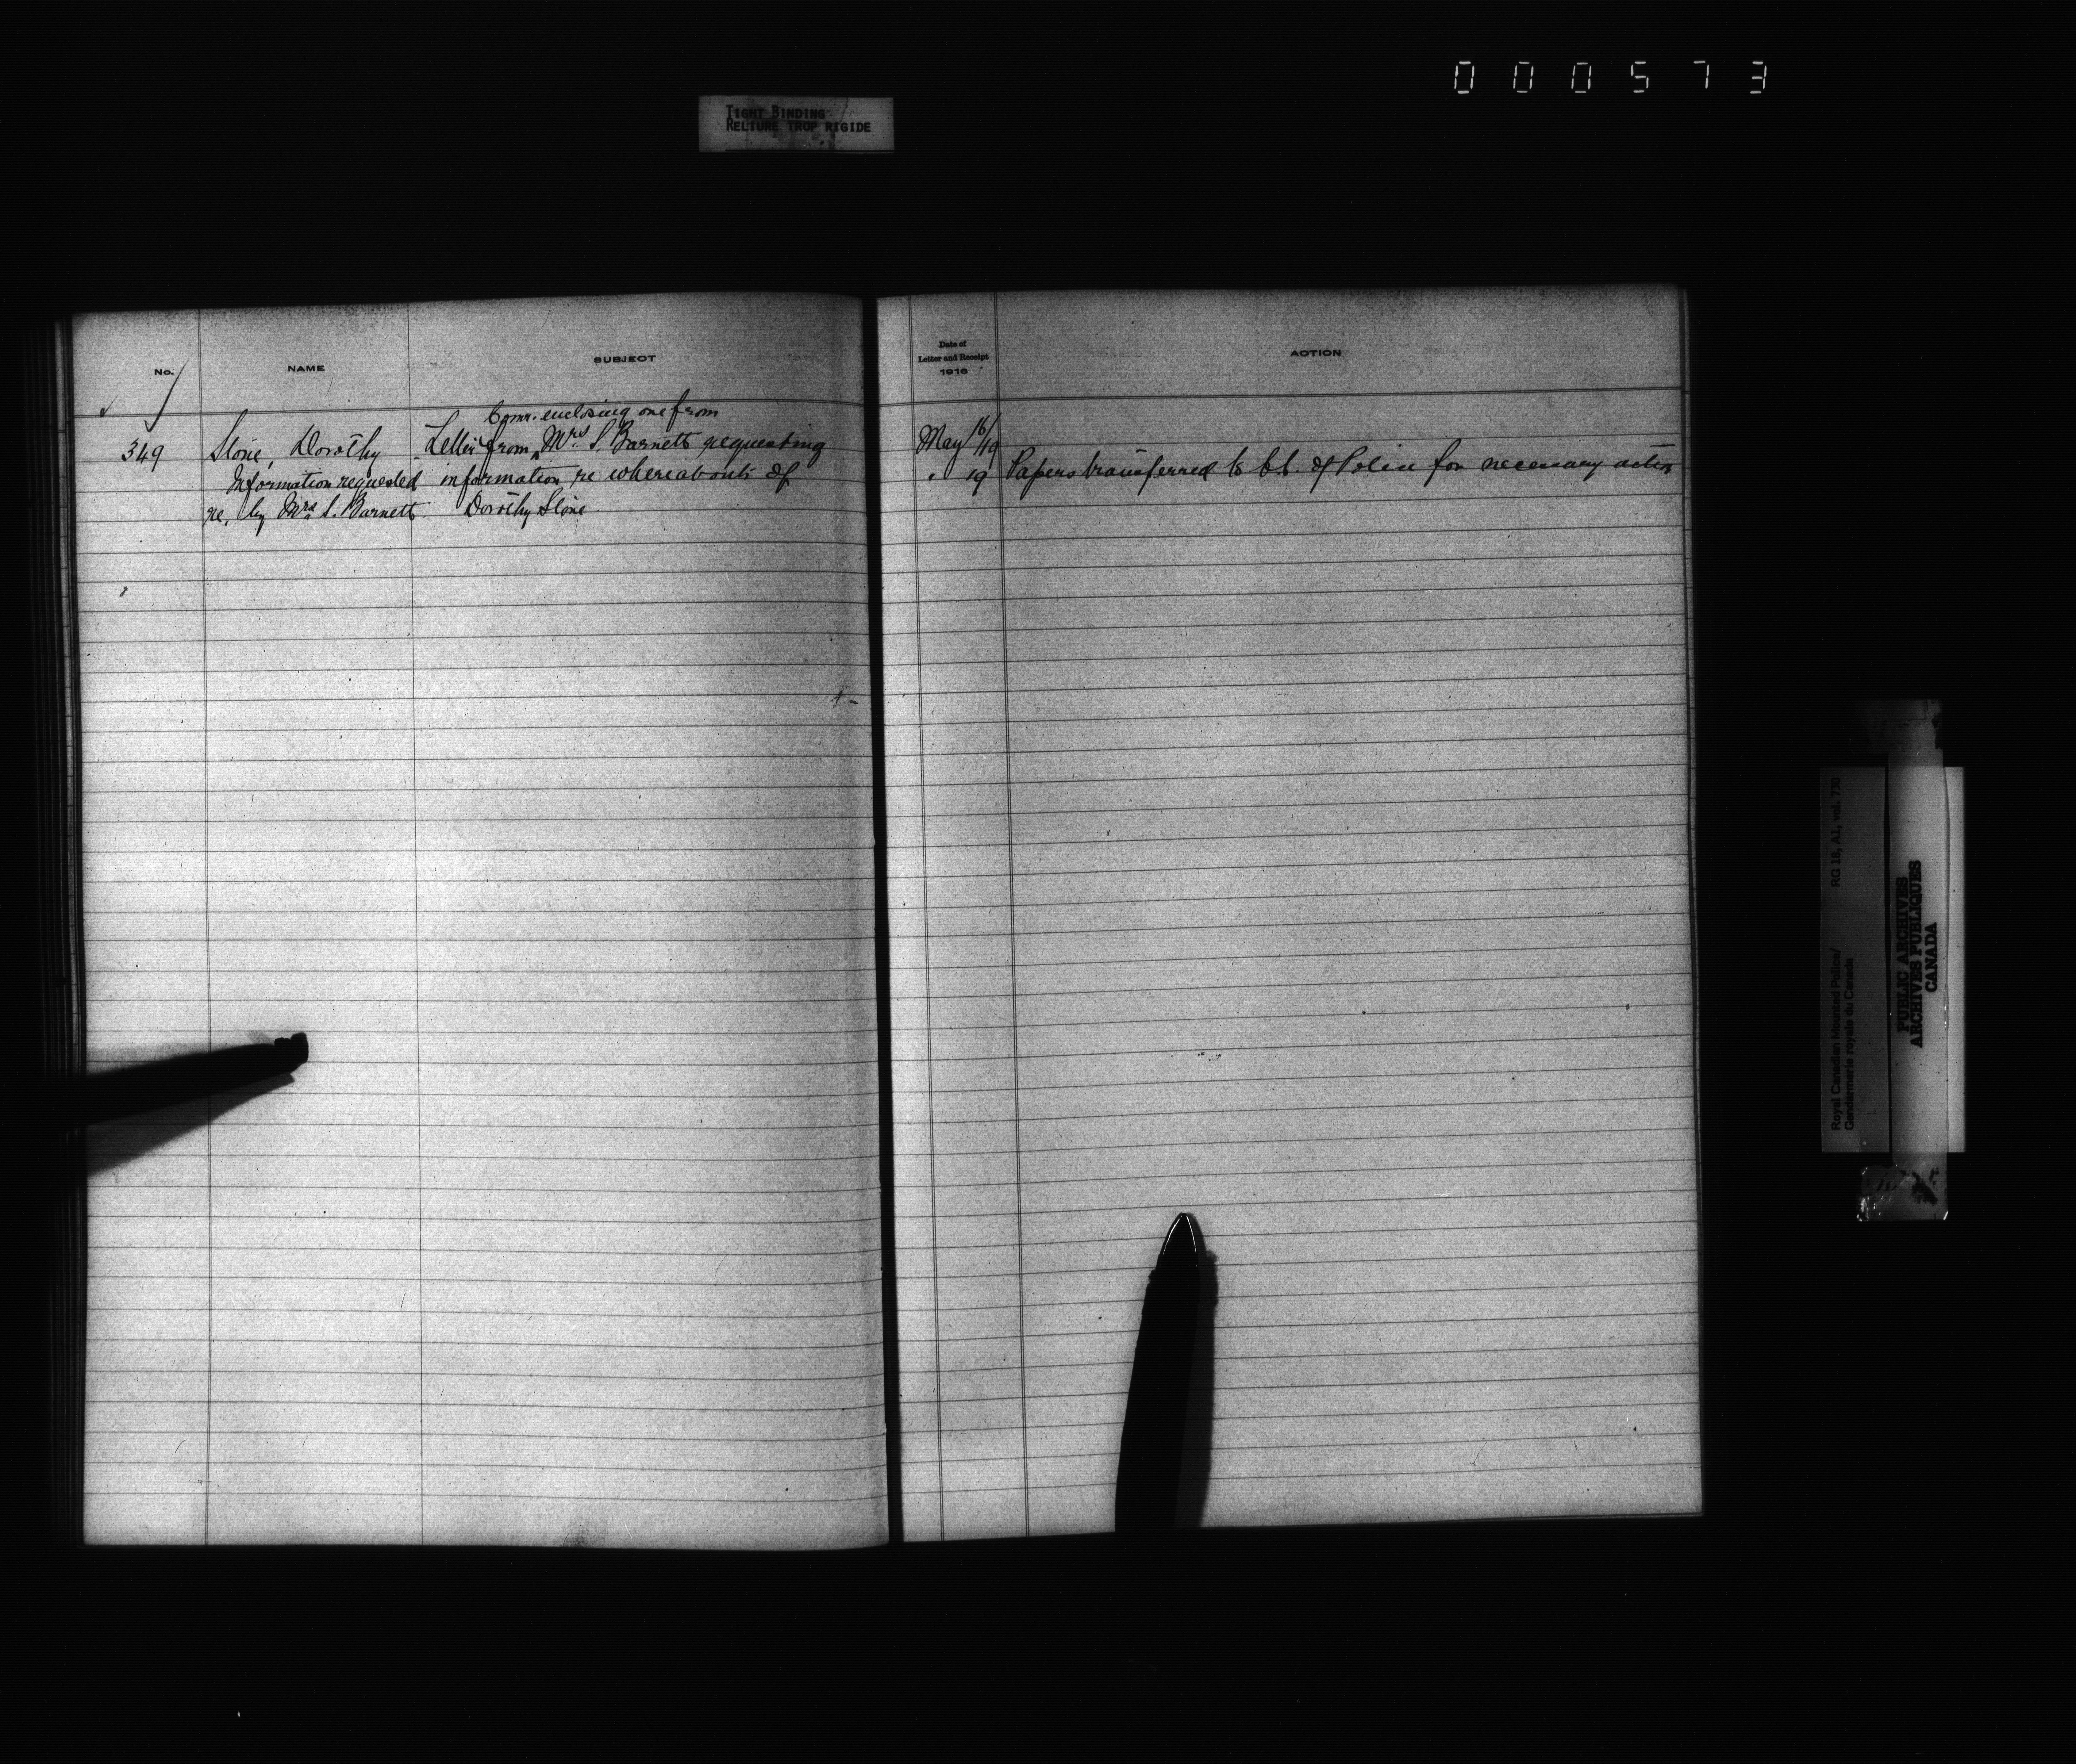 000573
TIGHT BINDING
RELIURE TROP RIGIDE
No.
NAME
SUBJECT
Date of
Letter and Receipt
1916
ACTION
Comr. enclosing one from
349 Stone, Dorothy Letter from Mrs S. Barnett requesting May 16/19
Information requested information re whereabouts of " 19 Papers transferred to C.C. of Police for necessary action
re, by Mrs S. Barnett Dorothy Stone.
Royal Canadian Mounted Police/ RG 18, A1, vol. 730
Gendarmerie royale du Canada
PUBLIC ARCHIVES
ARCHIVES PUBLIQUES
CANADA